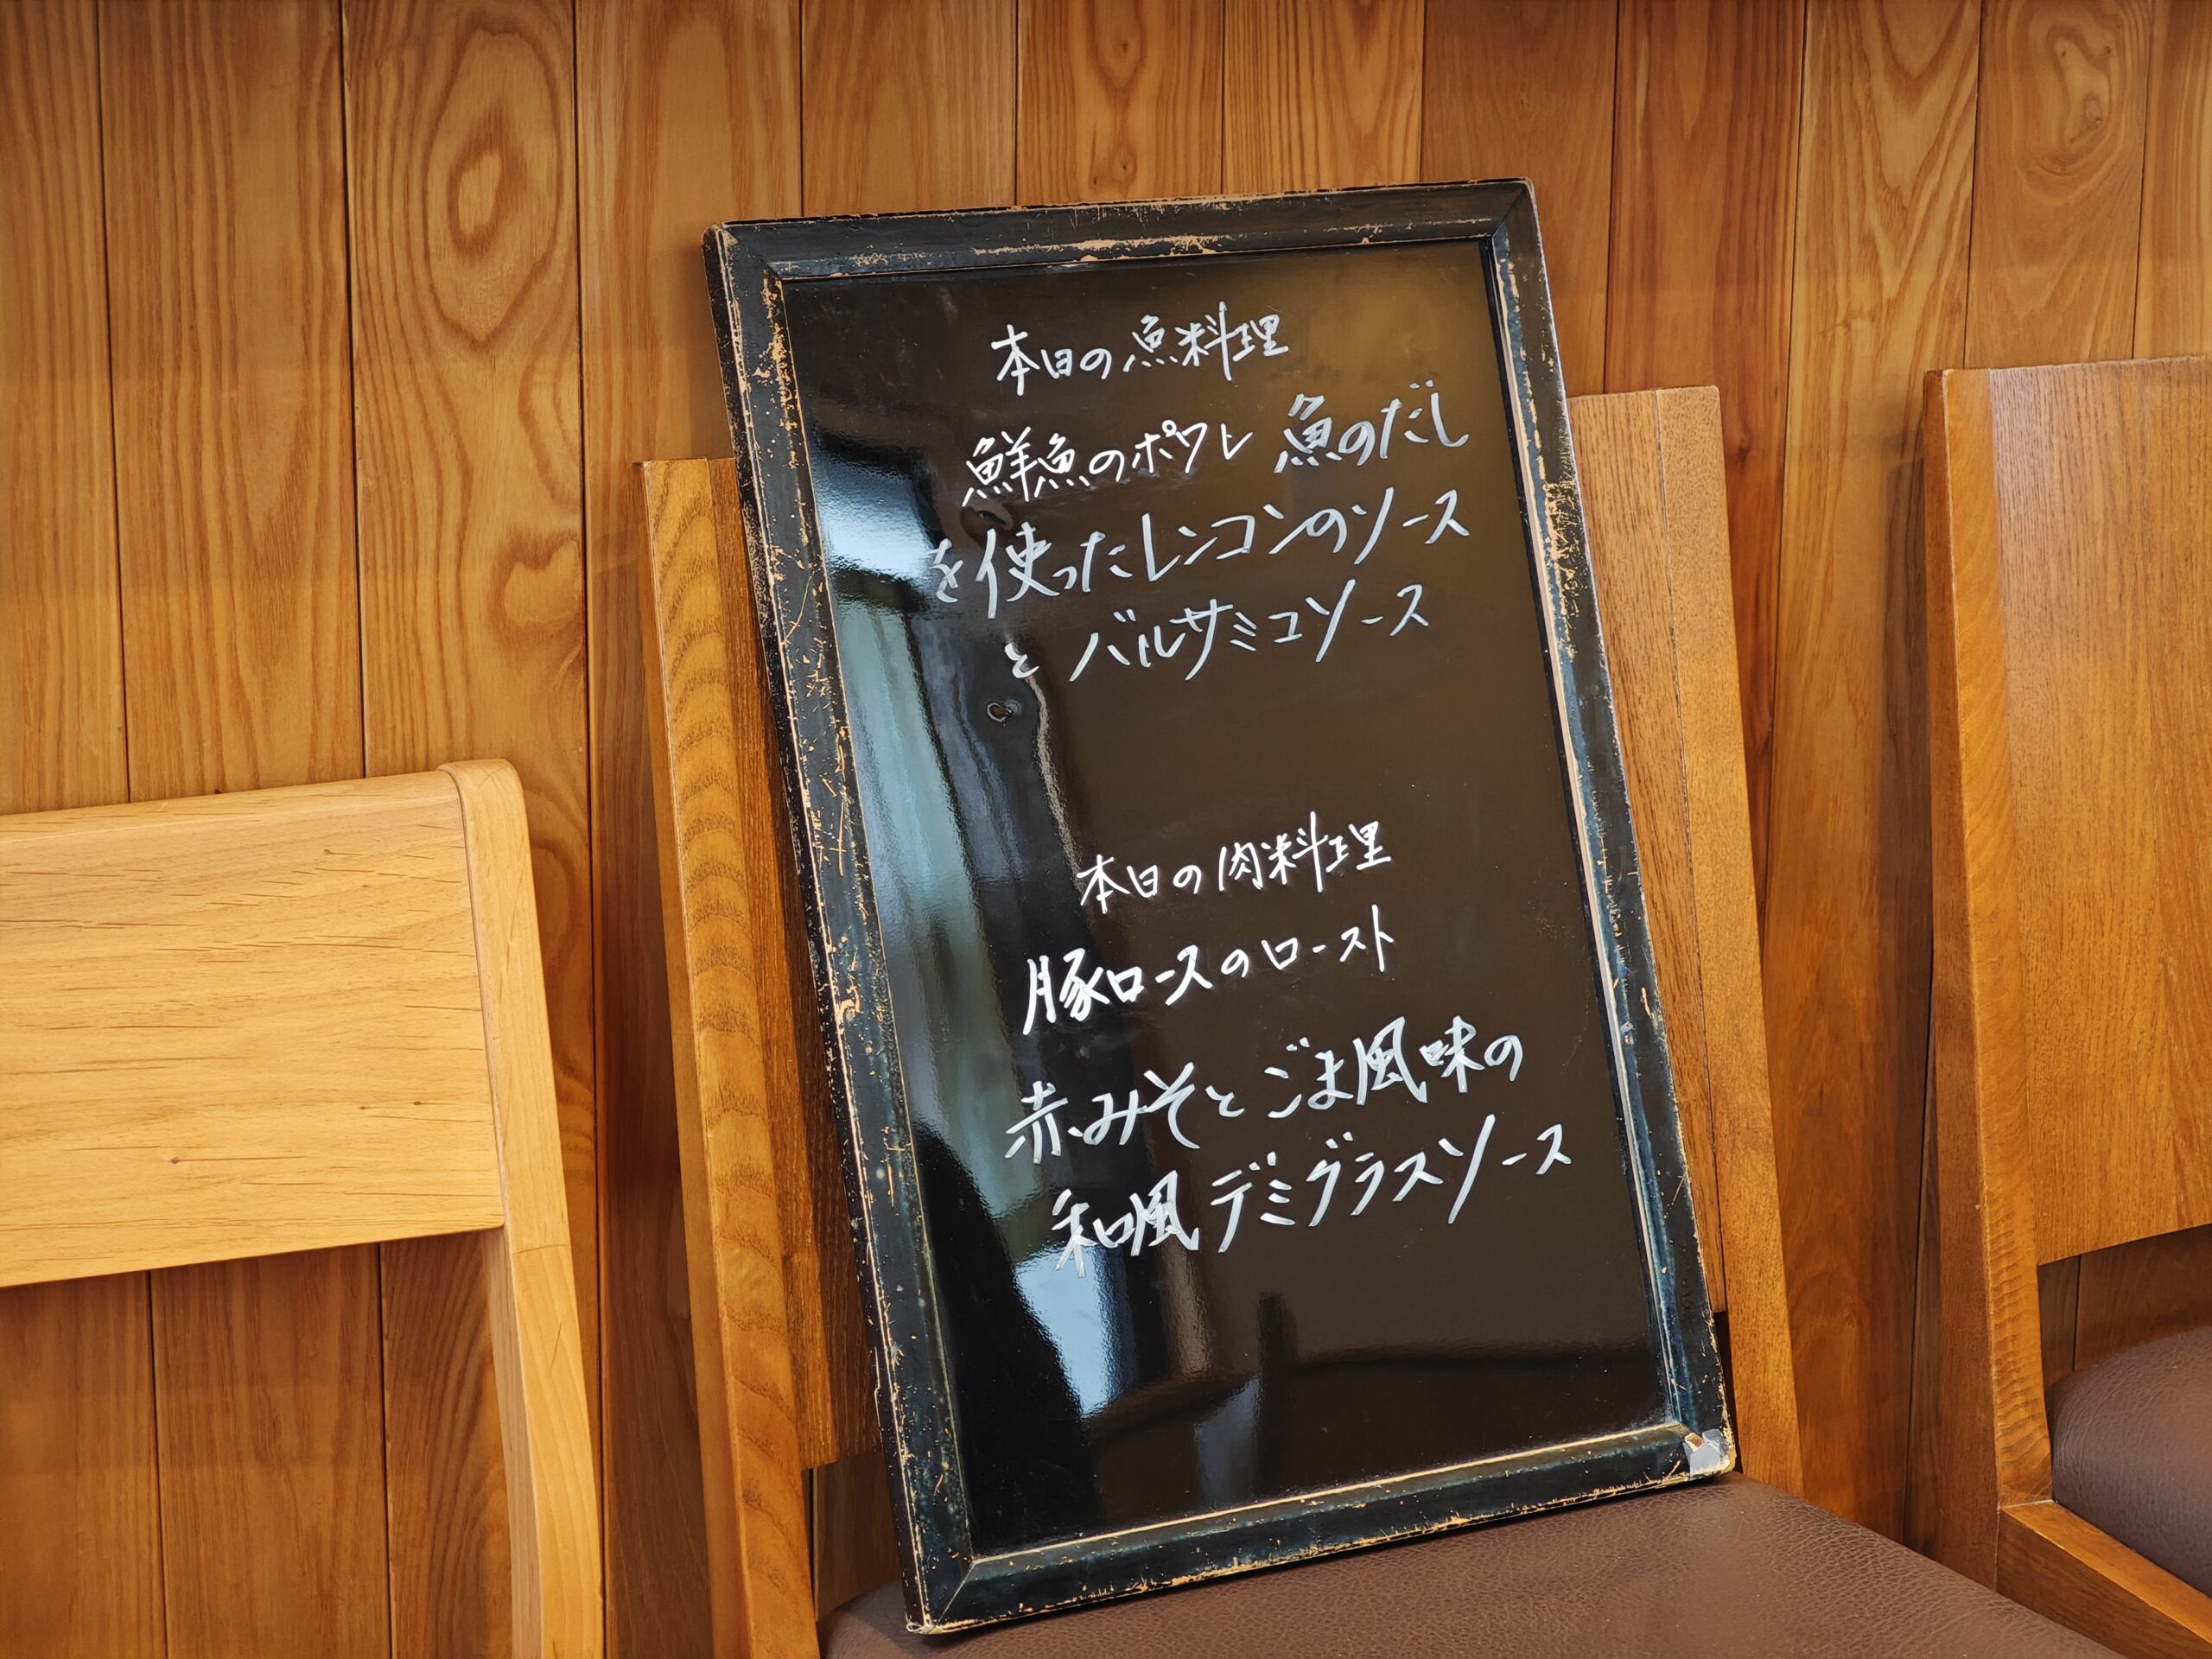 本日の魚料理
鮮魚のポワレ 魚のだし
を使ったレンコンのソース
とバルサミコソース
本日の肉料理
豚ロースのロースト
赤みそとごま風味の
和風デミグラスソース